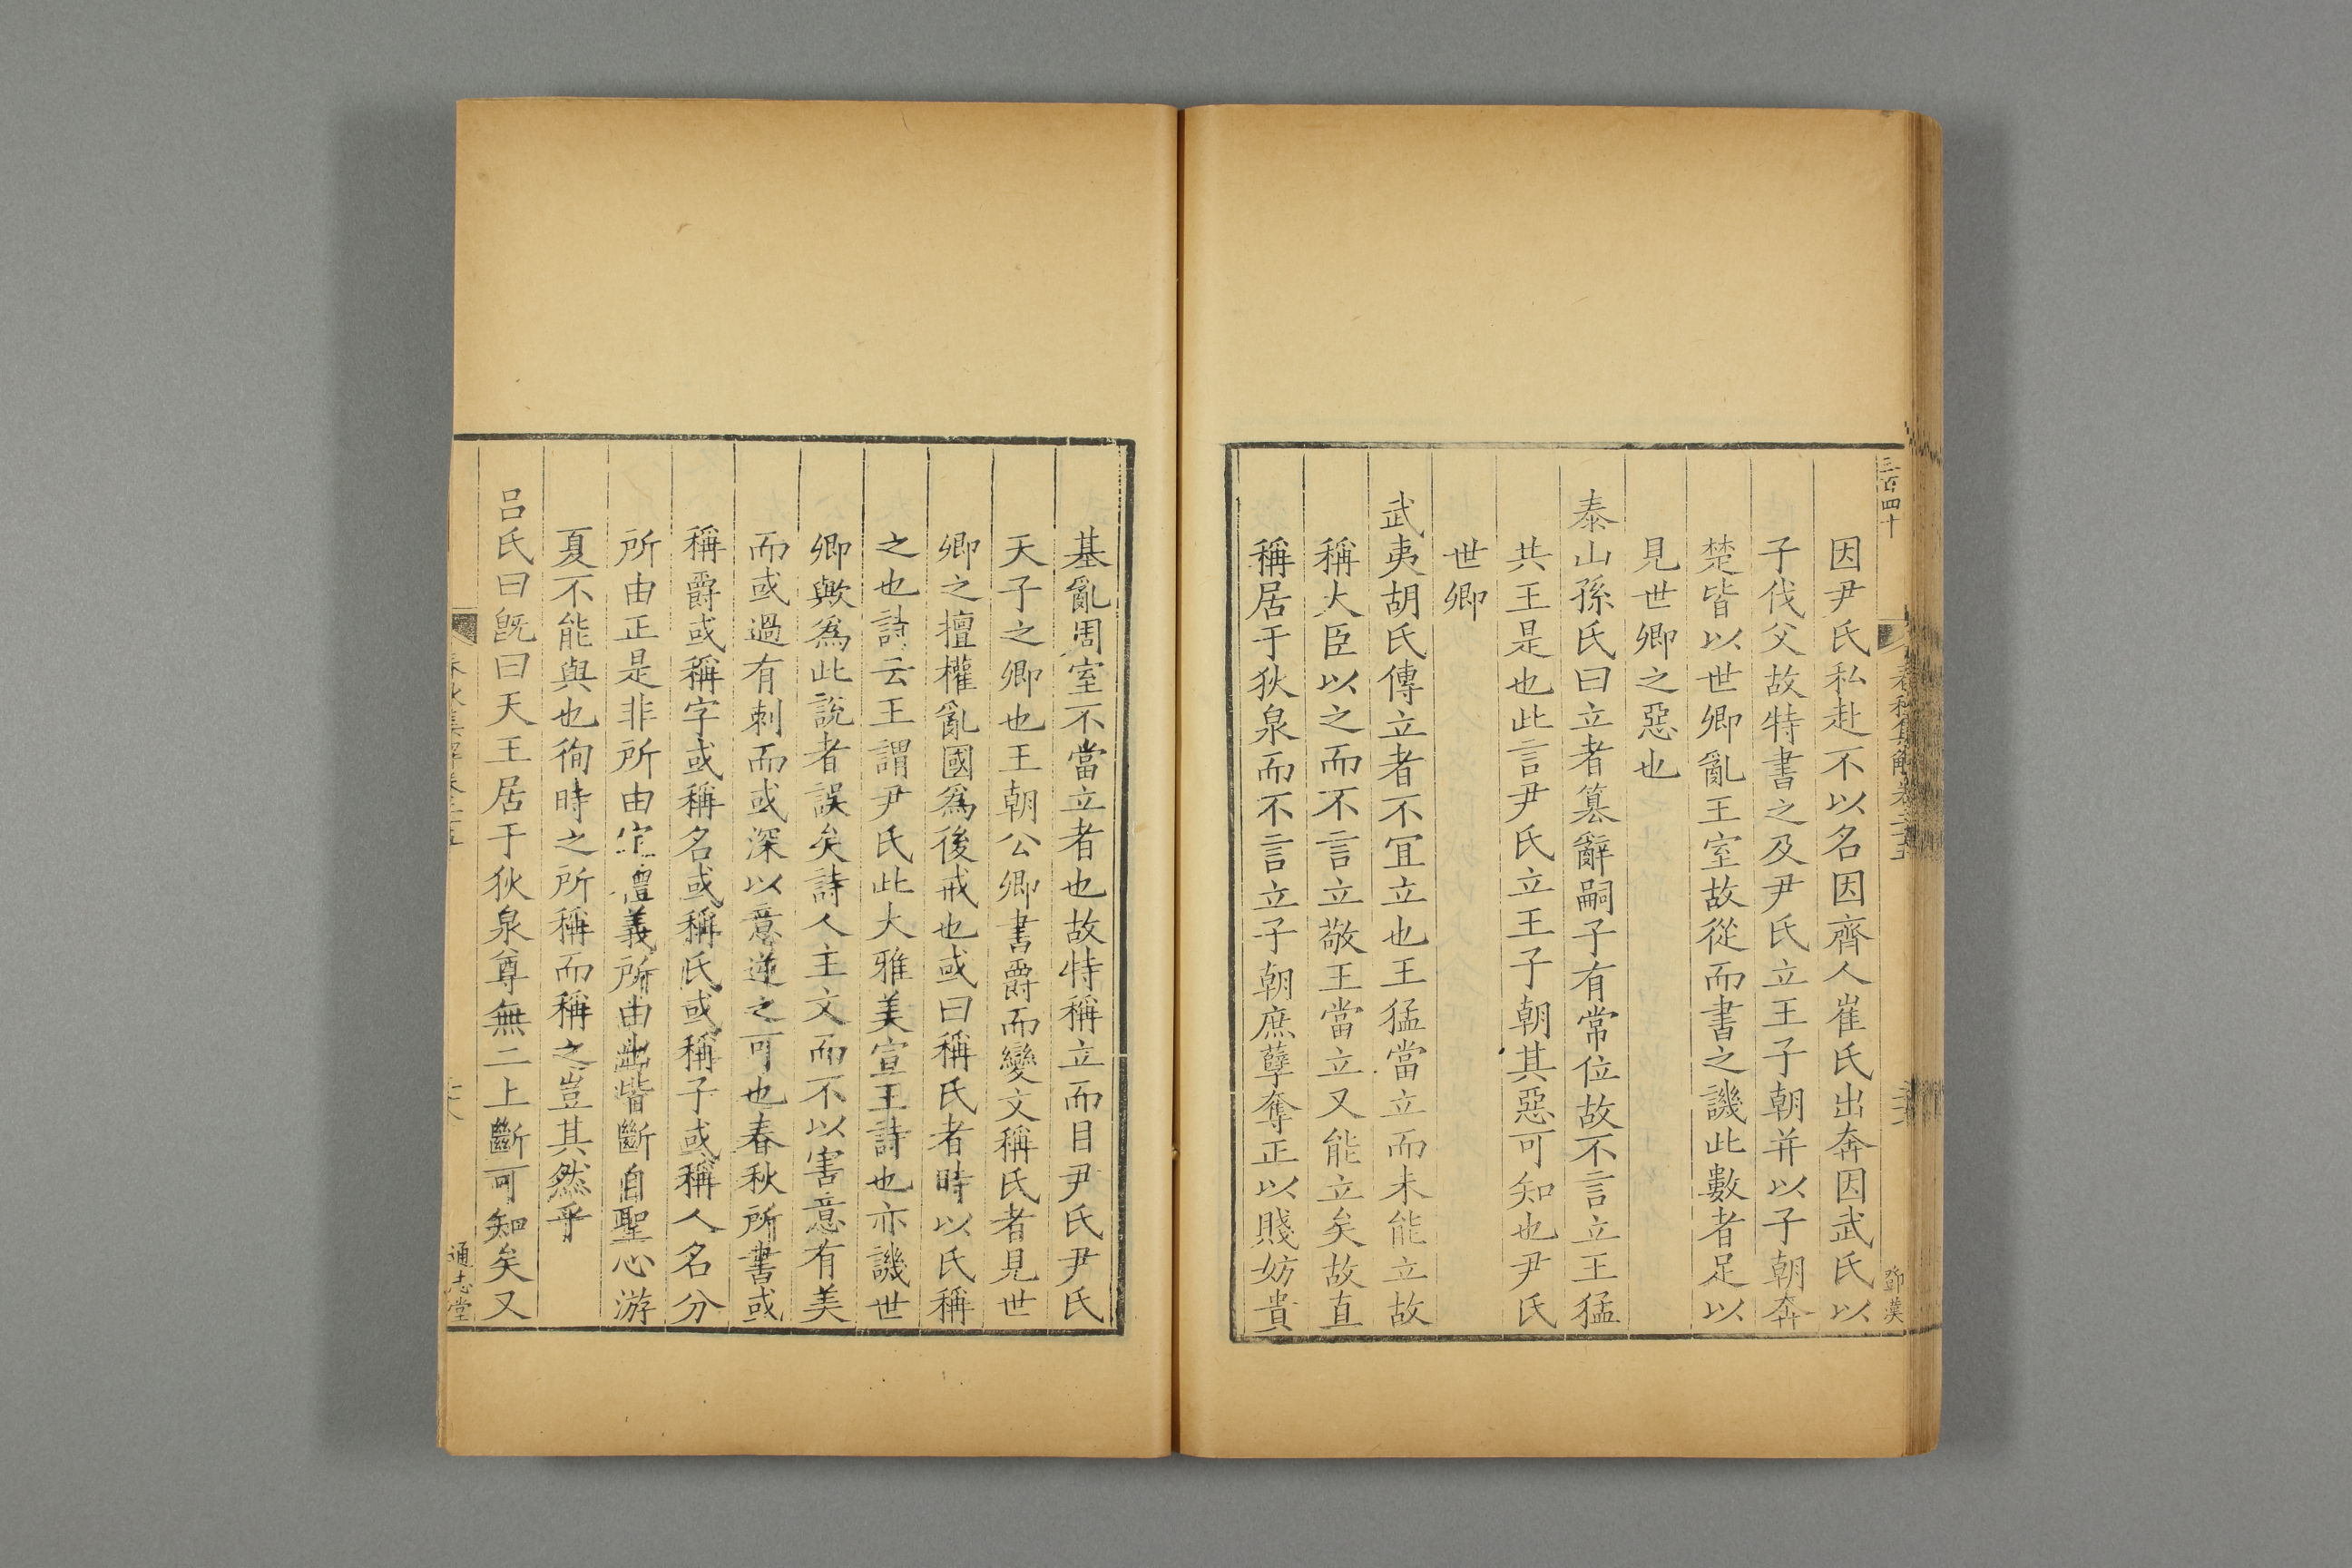 三百四十
鄧漢
因尹氏私赴不以名因齊人崔氏出奔因武氏以
子伐父故特書之及尹氏立王子朝并以子朝奔
楚皆以世卿亂王室故從而書之譏此數者足以
見世卿之惡也
泰山孫氏曰立者篡辭嗣子有常位故不言立王猛
共王是也此言尹氏立王子朝其惡可知也尹氏
世卿
武夷胡氏傳立者不冝立也王猛當立而未能立故
稱大臣以之而不言立敬王當立又能立矣故直
稱居于狄泉而不言立子朝庶孽奪正以賤妨貴
基亂周室不當立者也故特稱立而目尹氏尹氏
天子之卿也王朝公卿書爵而變文稱氏者見世
卿之擅權亂國爲後戒也或曰稱氏者時以氏稱
之也詩云王謂尹氏此大雅美宣王詩也亦譏世
卿歟爲此說者誤矣詩人主文而不以害意有美
而或過有刺而或深以意逆之可也春秋所書或
稱爵或稱字或稱名或稱氏或稱子或稱人名分
所由正是非所由定禮義所由出皆斷自聖心游
夏不能與也徇時之所稱而稱之豈其然乎
呂氏曰旣曰天王居于狄泉尊無二上斷可知矣又
通志堂